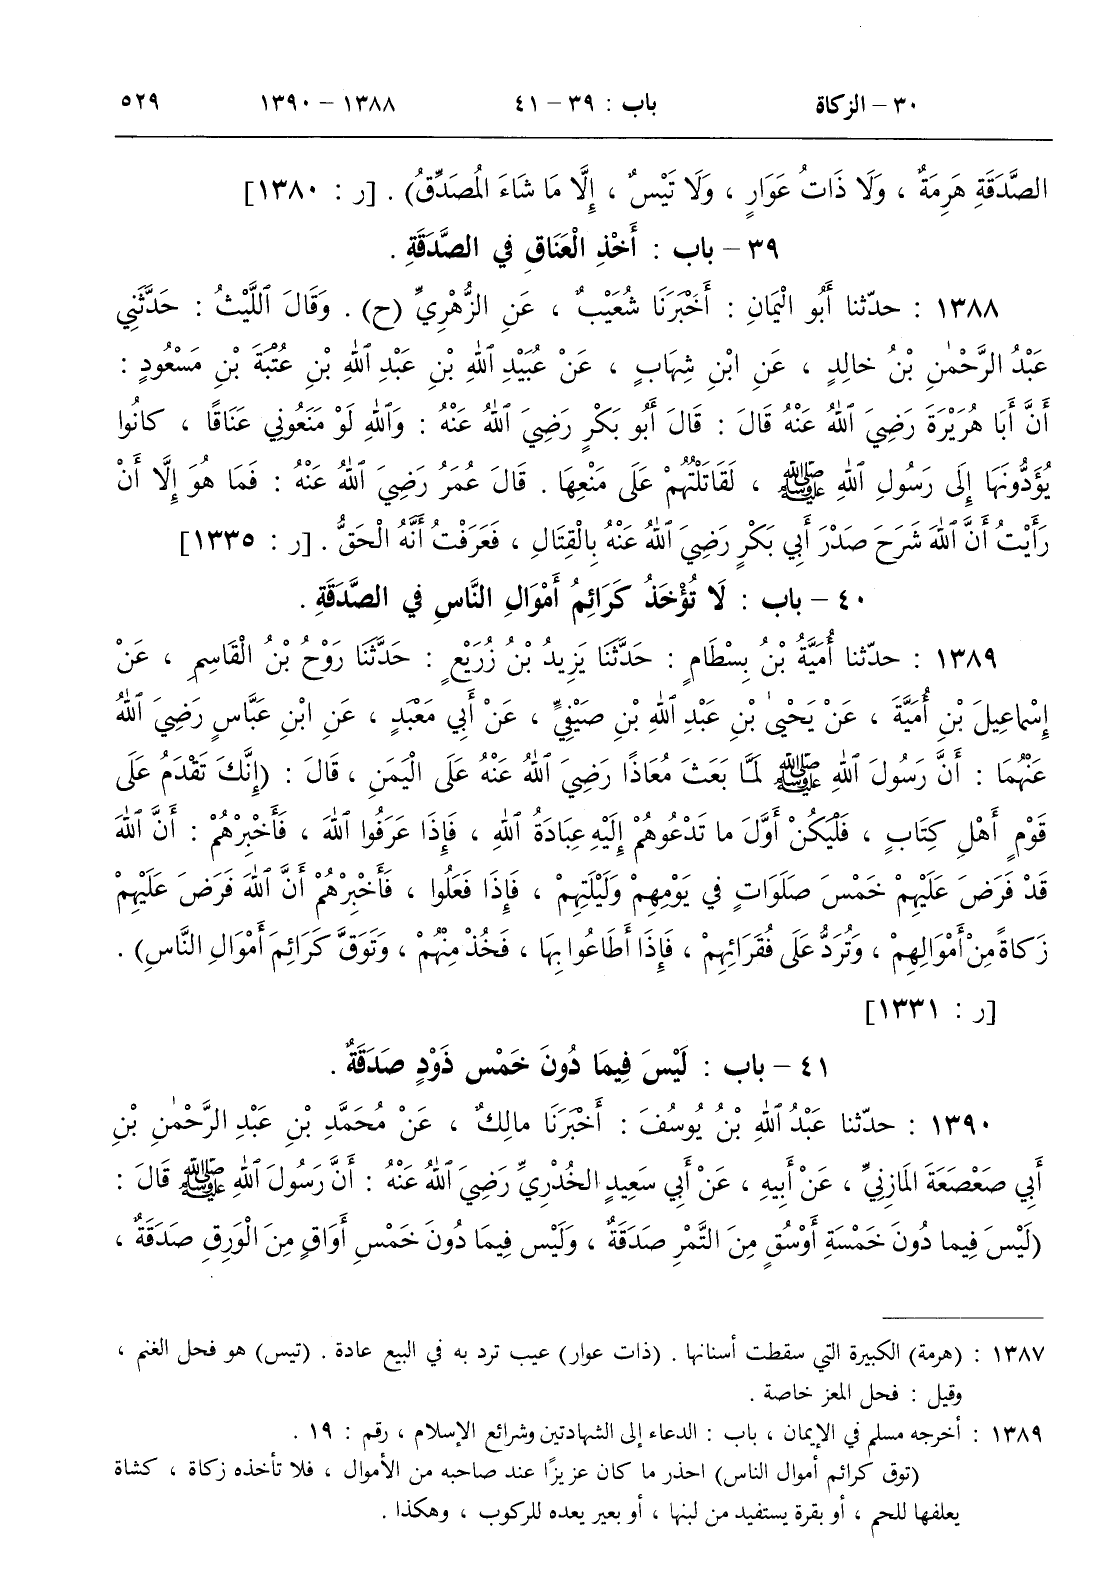 ٣٠ – الزكاة باب : ٣٩ – ٤١ ١٣٨٨ – ١٣٩٠ ٥٢٩
الصَّدَقَةِ هَرِمَةٌ ، وَلَا ذَاتُ عَوَارٍ ، وَلَا تَيْسٌ ، إِلَّا مَا شَاءَ الْمُصَدِّقُ) . [ر : ١٣٨٠]
٣٩ – باب : أَخْذِ الْعَنَاقِ فِي الصَّدَقَةِ .
١٣٨٨ : حدّثنا أَبُو الْيَمَانِ : أَخْبَرَنَا شُعَيْبٌ ، عَنِ الزُّهْرِيِّ (ح) . وَقَالَ اللَّيْثُ : حَدَّثَنِي
عَبْدُ الرَّحْمٰنِ بْنُ خالِدٍ ، عَنِ ابْنِ شِهَابٍ ، عَنْ عُبَيْدِ اللهِ بْنِ عَبْدِ اللهِ بْنِ عُتْبَةَ بْنِ مَسْعُودٍ :
أَنَّ أَبَا هُرَيْرَةَ رَضِيَ اللهُ عَنْهُ قالَ : قالَ أَبُو بَكْرٍ رَضِيَ اللهُ عَنْهُ : وَاللهِ لَوْ مَنَعُونِي عَنَاقًا ، كانُوا
يُؤَدُّونَهَا إِلَى رَسُولِ اللهِ ﷺ ، لَقَاتَلْتُهُمْ عَلَى مَنْعِهَا . قَالَ عُمَرُ رَضِيَ اللهُ عَنْهُ : فَمَا هُوَ إِلَّا أَنْ
رَأَيْتُ أَنَّ اللهَ شَرَحَ صَدْرَ أَبِي بَكْرٍ رَضِيَ اللهُ عَنْهُ بِالْقِتَالِ ، فَعَرَفْتُ أَنَّهُ الْحَقُّ . [ر : ١٣٣٥]
٤٠ – باب : لَا تُؤْخَذُ كَرَائِمُ أَمْوَالِ النَّاسِ فِي الصَّدَقَةِ .
١٣٨٩ : حدّثنا أُمَيَّةُ بْنُ بِسْطَامٍ : حَدَّثَنَا يَزِيدُ بْنُ زُرَيْعٍ : حَدَّثَنَا رَوْحُ بْنُ الْقَاسِمِ ، عَنْ
إِسْماعِيلَ بْنِ أُمَيَّةَ ، عَنْ يَحْيىٰ بْنِ عَبْدِ اللهِ بْنِ صَيْفِيٍّ ، عَنْ أَبِي مَعْبَدٍ ، عَنِ ابْنِ عَبَّاسٍ رَضِيَ اللهُ
عَنْهُمَا : أَنَّ رَسُولَ اللهِ ﷺ لَمَّا بَعَثَ مُعَاذًا رَضِيَ اللهُ عَنْهُ عَلَى الْيَمَنِ ، قَالَ : (إِنَّكَ تَقْدَمُ عَلَى
قَوْمٍ أَهْلِ كِتَابٍ ، فَلْيَكُنْ أَوَّلَ ما تَدْعُوهُمْ إِلَيْهِ عِبَادَةُ اللهِ ، فَإِذَا عَرَفُوا اللهَ ، فَأَخْبِرْهُمْ : أَنَّ اللهَ
قَدْ فَرَضَ عَلَيْهِمْ خَمْسَ صَلَوَاتٍ فِي يَوْمِهِمْ وَلَيْلَتِهِمْ ، فَإِذَا فَعَلُوا ، فَأَخْبِرْهُمْ أَنَّ اللهَ فَرَضَ عَلَيْهِمْ
زَكاةً مِنْ أَمْوَالِهِمْ ، وَتُرَدُّ عَلَى فُقَرَائِهِمْ ، فَإِذَا أَطَاعُوا بِهَا ، فَخُذْ مِنْهُمْ ، وَتَوَقَّ كَرَائِمَ أَمْوَالِ النَّاسِ) .
[ر : ١٣٣١]
٤١ – باب : لَيْسَ فِيمَا دُونَ خَمْسِ ذَوْدٍ صَدَقَةٌ .
١٣٩٠ : حدّثنا عَبْدُ اللهِ بْنُ يُوسُفَ : أَخْبَرَنَا مالِكٌ ، عَنْ مُحَمَّدِ بْنِ عَبْدِ الرَّحْمٰنِ بْنِ
أَبِي صَعْصَعَةَ الْمَازِنِيِّ ، عَنْ أَبِيهِ ، عَنْ أَبِي سَعِيدٍ الخُدْرِيِّ رَضِيَ اللهُ عَنْهُ : أَنَّ رَسُولَ اللهِ ﷺ قَالَ :
(لَيْسَ فِيما دُونَ خَمْسَةِ أَوْسُقٍ مِنَ التَّمْرِ صَدَقَةٌ ، وَلَيْس فِيمَا دُونَ خَمْسِ أَوَاقٍ مِنَ الْوَرِقِ صَدَقَةٌ ،
١٣٨٧ : (هرمة) الكبيرة التي سقطت أسنانها . (ذات عوار) عيب ترد به في البيع عادة . (تيس) هو فحل الغنم ،
وقيل : فحل المعز خاصة .
١٣٨٩ : أخرجه مسلم في الإيمان ، باب : الدعاء إلى الشهادتين وشرائع الإسلام ، رقم : ١٩ .
(توق كرائم أموال الناس) احذر ما كان عزيزًا عند صاحبه من الأموال ، فلا تأخذه زكاة ، كشاة
يعلفها للحم ، أو بقرة يستفيد من لبنها ، أو بعير يعده للركوب ، وهكذا .